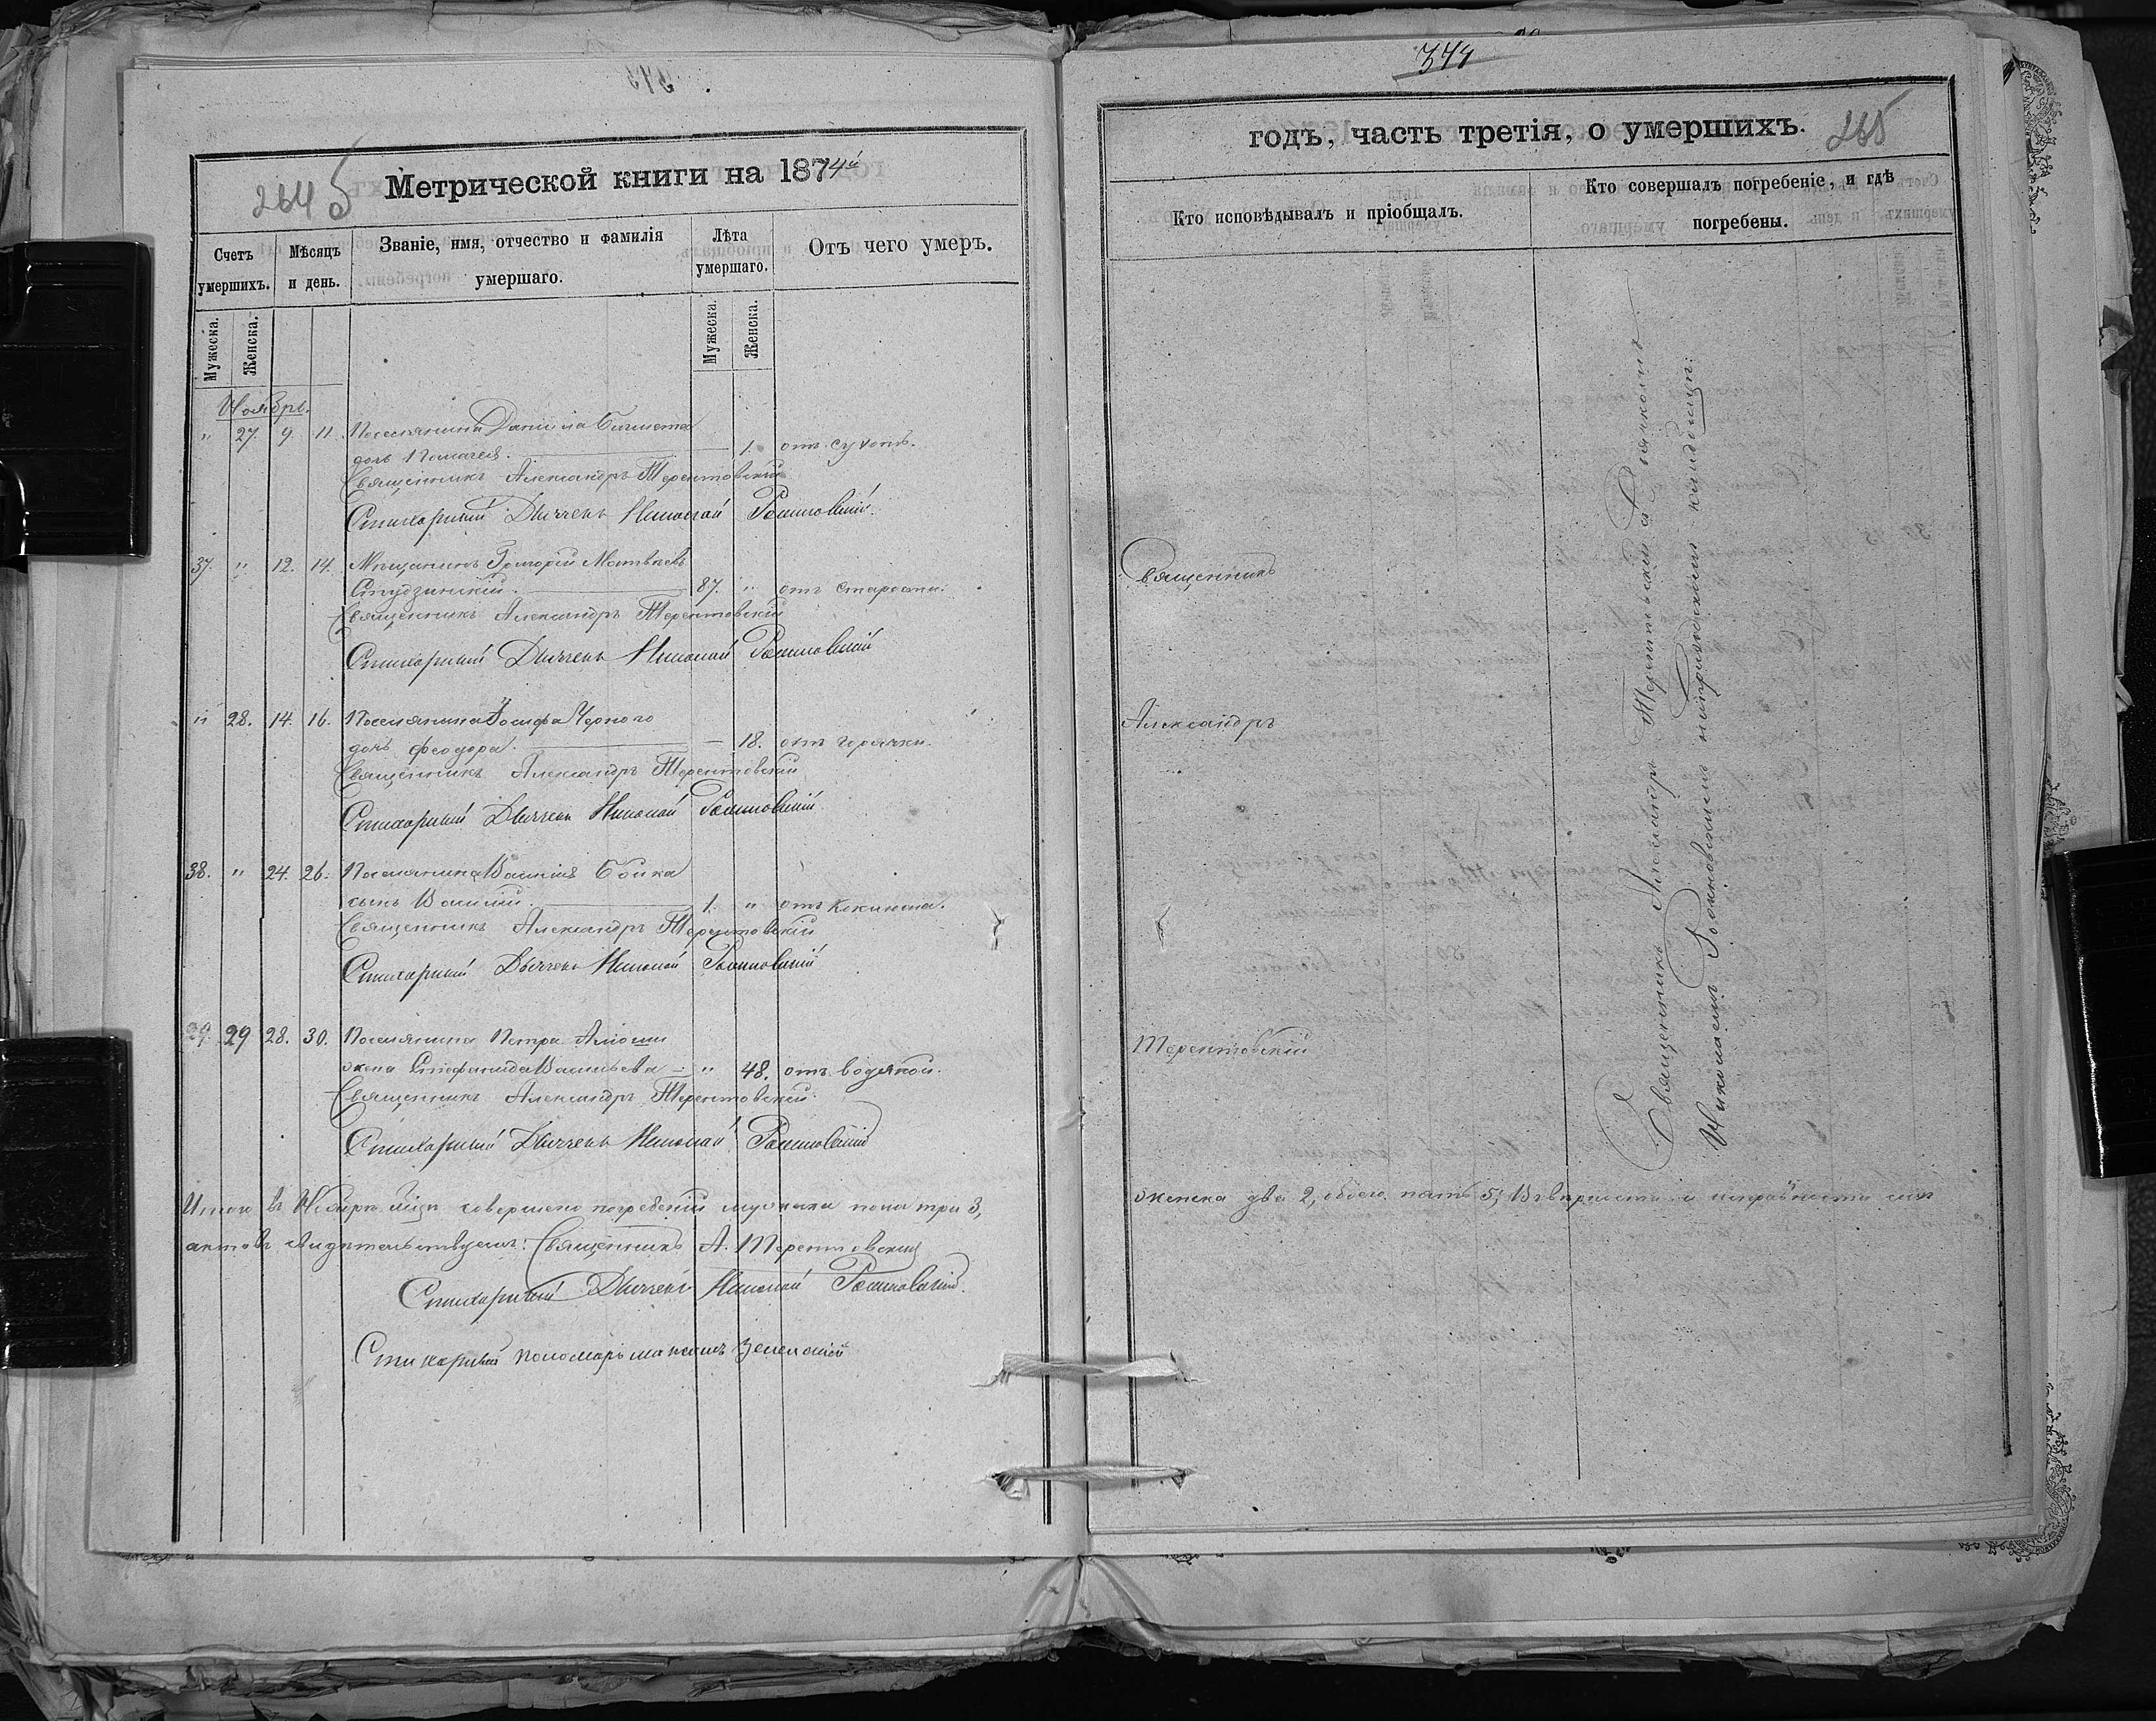 264 б
Метрической книги на 1874й
Счетъ умершихъ.
Мѣсяцъ и день.
Званіе, имя, отчество и фамилія умершаго.
Лѣта умершаго.
Отъ чего умеръ.
Мужеска.
Женска.
Мужеска.
Женска.
Ноябрь.
" 27. 9. 11. Поселянина Даніила
дочь 1. отъ сухотъ.
Священникъ Александръ Терентовскій
Стихарный Дьячекъ Николай
37. " 12. 14. Мѣщанинъ Григорій Матвѣевъ
Студзинскій. 87. " отъ старости.
Священникъ Александръ Терентовскій
Стихарный Дьячекъ Николай
" 28. 14. 16. Поселянина Іосифа Чорного
дочь Феодора. 18. отъ горячки.
Священникъ Александръ Терентовскій
Стихарный Дьячекъ Николай
38. " 24. 26. Поселянина Василія Бойка
сынъ Василій. 1. " отъ коклюша.
Священникъ Александръ Терентовскій
Стихарный Дьячекъ Николай
29 28. 30. Поселянина Петра
жена Стефанида Васильева " 48. отъ водяной.
Священникъ Александръ Терентовскій
Стихарный Дьячекъ Николай
Итого въ Ноябрѣ совершено погребеній мужеска пола три 3,
актовъ свидѣтельствуемъ: Священникъ А. Терентовскій
Стихарный Дьячекъ Николай
Стихарный пономарь
344
годъ, часть третія, о умершихъ. 265
Кто исповѣдывалъ и пріобщалъ.
Кто совершалъ погребеніе, и гдѣ погребены.
Священникъ
Александръ
Терентовскій
Священникъ Александръ Терентовскій съ Дьячкомъ
Николаемъ на приходскомъ кладбищѣ.
женска два 2, обоего пять 5; Въ вѣрности и исправности сихъ